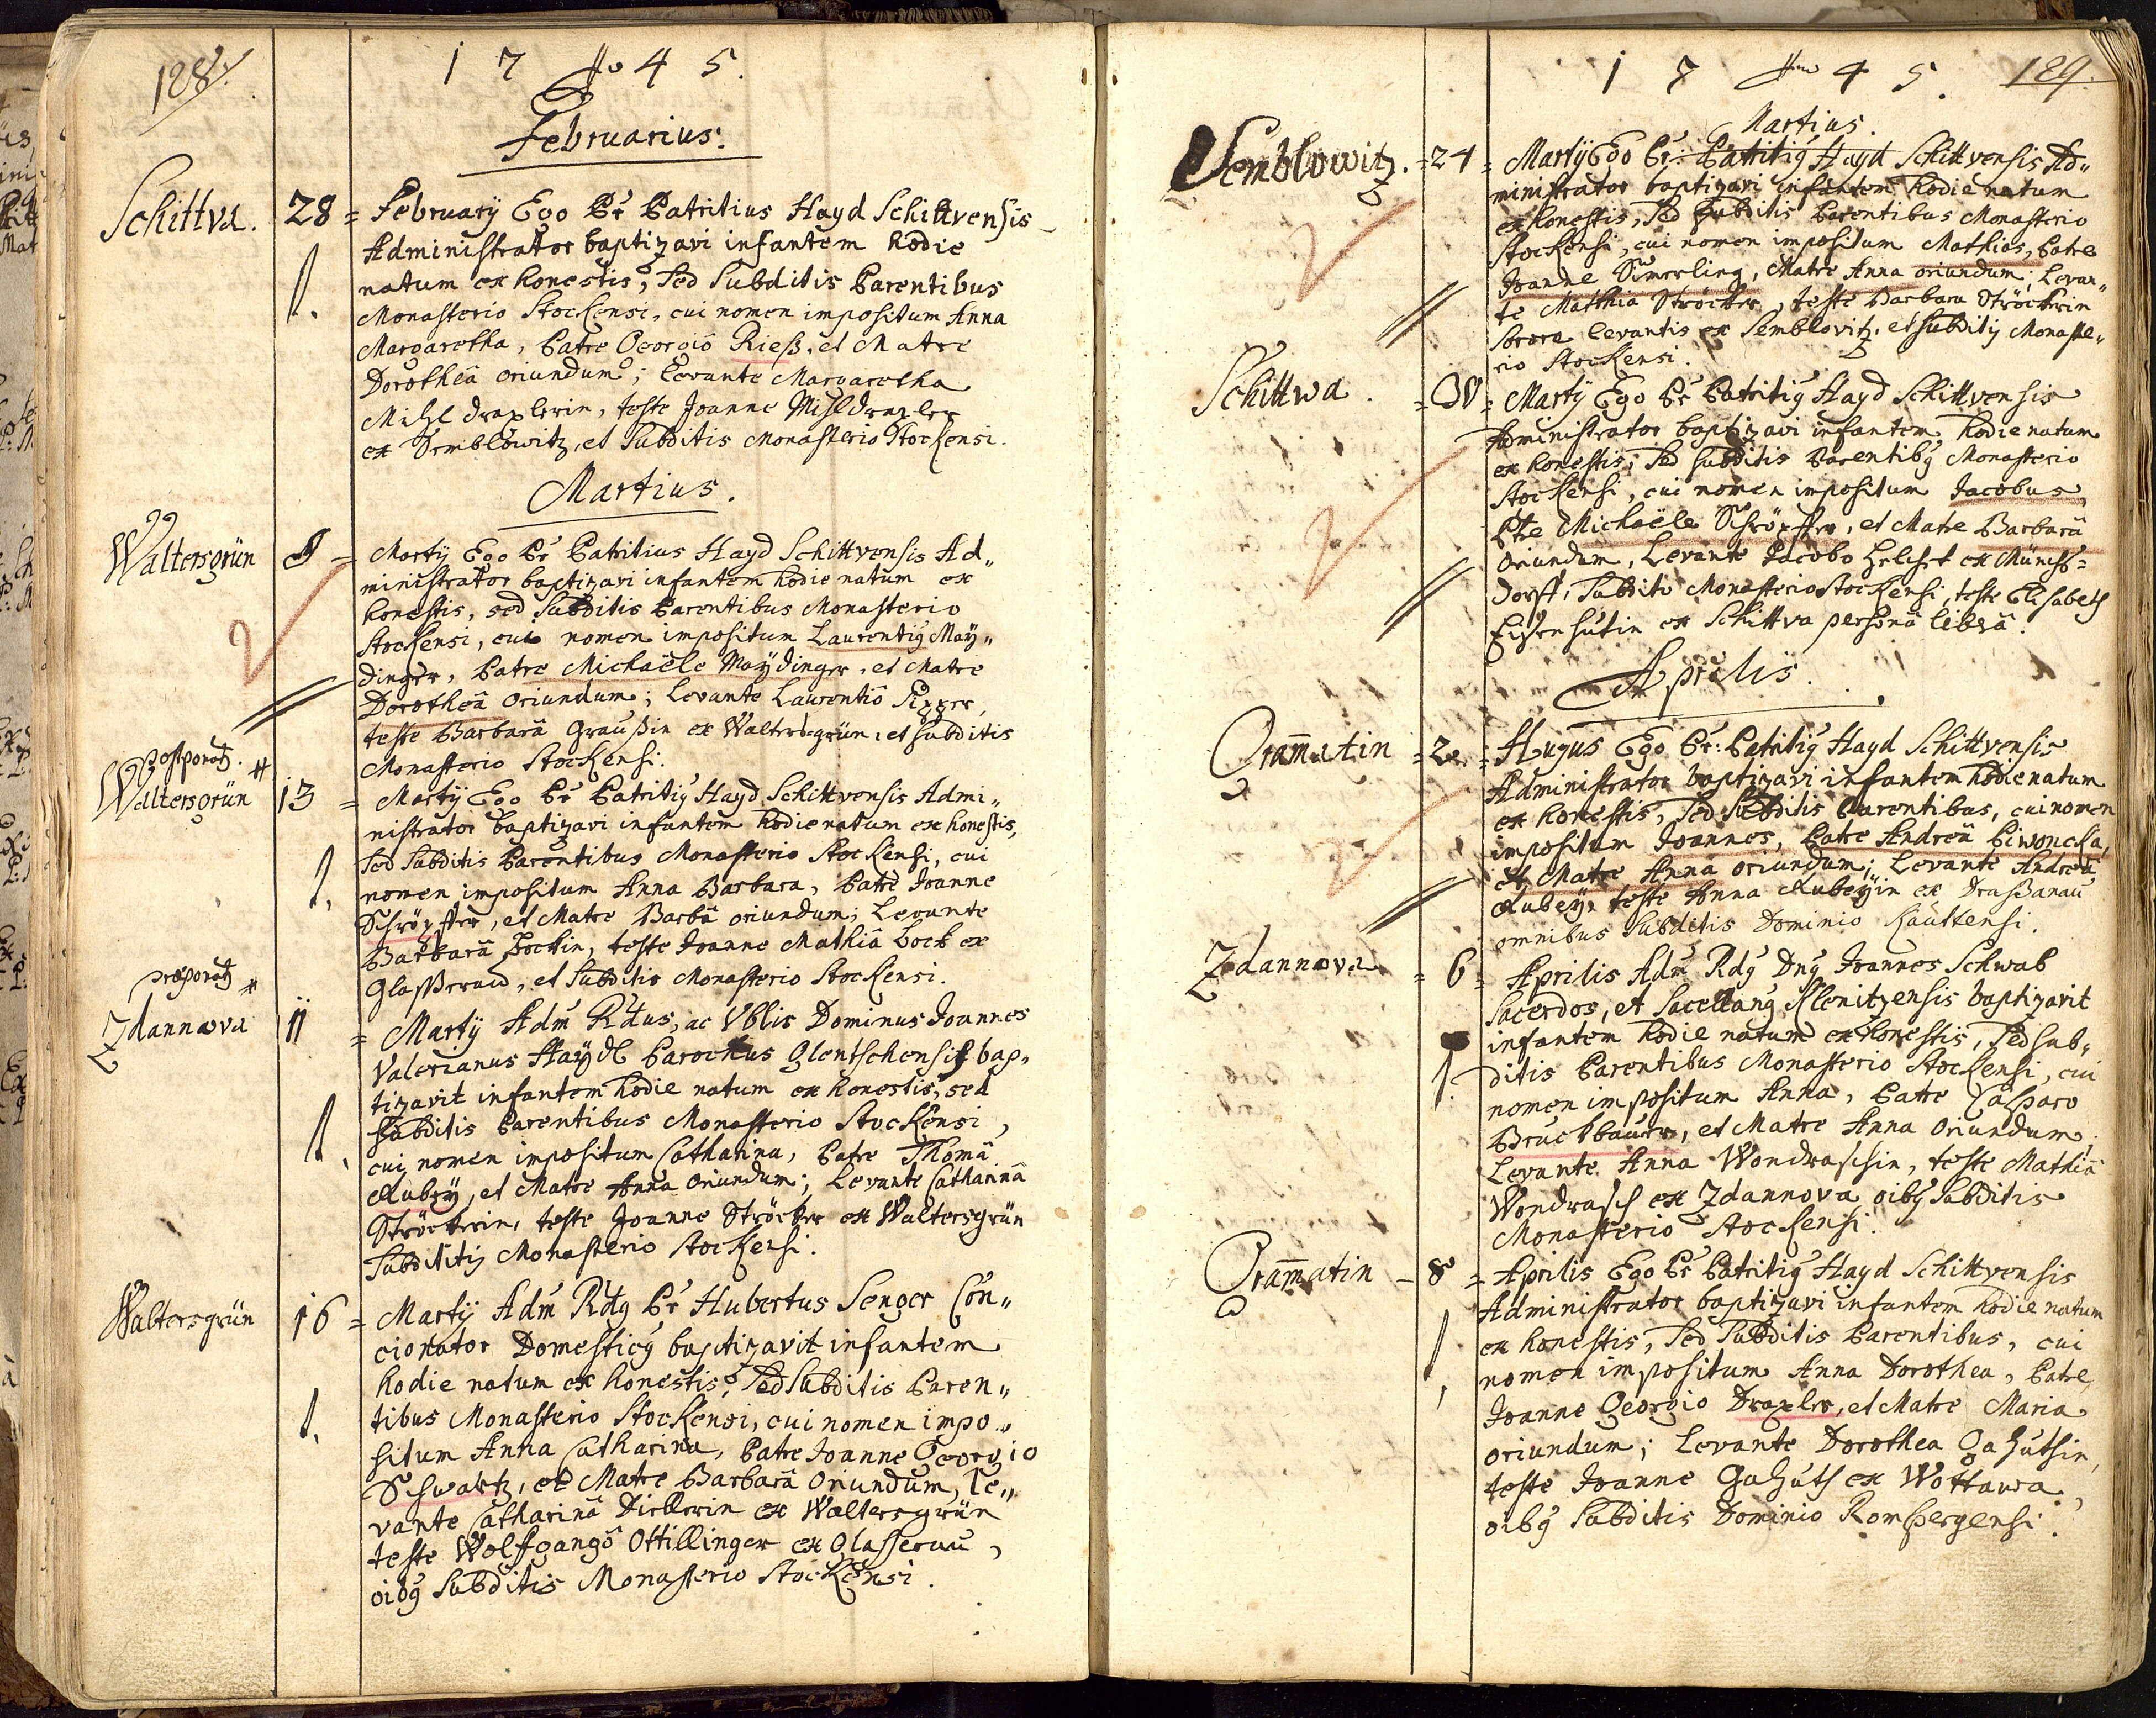 128.
1 7 Ao 4 5.
Februarius.
Schittva. 28 = Februarÿ Ego Pr Patritius Hayd Schittvensis
Administrator baptizavi infantem hodie
natum ex honestis, sed Subditis Parentibus
Monasterio Stockensi, cui nomen impositum Anna
Margaretha, Patre Georgiô Rieß, et Matre
Dorotheâ oriundum; Levante Margaretha
Mihldraxlerin, teste Joanne Mihldraxler
ex Semblowitz, et Subditis Monasterio Stockensi.
Martius.
Waltersgrün 8 = Martÿ Ego Pr Patritius Hayd Schittvensis Ad„
ministrator baptizavi infantem hodie natum ex
honestis, sed Subditis Parentibus Monasterio
Stockensi, cui nomen impositum Laurentiꝰ Maÿ„
dinger, Patre Michaële Maÿdinger, et Matre
Dorotheâ oriundum; Levante Laurentiô
teste Barbarâ Graußin ex Waltersgrün, et subditis
Monasterio Stockensi.
postponatꝰ. #
Waltersgrün 13 = Martÿ Ego Pr Patritiꝰ Hayd Schittvensis Admi„
nistrator baptizavi infantem hodie natum ex honestis,
sed Subditis Parentibus Monasterio Stockensi, cui
nomen impositum Anna Barbara, Patre Joanne
Schröpffer, et Matre Barbâ oriundum; Levante
Barbarâ Bockin, teste Joanne Mathiâ Bock ex
Glaßerau, et Subditis Monasterio Stockensi.
præponatꝰ #
Zdannova 11 = Martÿ Adm Rdus, ac Vblis Dominus Joannes
Valerianus Haÿdl Parochus Glentschensis bap„
tizavit infantem hodie natum ex honestis, sed
Subditis Parentibus Monasterio Stockensi,
cui nomen impositum Catharina, Patre Thomâ
Rubeÿ, et Matre Anna oriundum; Levante Catharinâ
Ströckerin, teste Joanne Ströcker ex Waltersgrün
Subditiÿ Monasterio Stockensi.
Waltersgrün 16 = Martÿ Adm Rdꝰ Pr Hubertus Senger Con„
cionator Domesticꝰ baptizavit infantem
hodie natum ex honestis, sed Subditis Paren„
tibus Monasterio Stockensi, cui nomen impo„
situm Anna Catharina, Patre Joanne Georgio
Schwartz, et Matre Barbarâ oriundum, Le„
vante Catharinâ Dirllerin ex Waltersgrün
teste Wolfgangô Ottillinger ex Glasserau,
oibꝰ Subditis Monasterio Stockensi.
1 7 Ao 4 5. 129.
Martius.
Semblowitz. = 24 = Martÿ Ego Pr: Patritiꝰ Hayd Schittvensis Ad„
ministrator baptizavi infantem hodie natum
ex honestis, sed Subditis Parentibus Monasterio
Stockensi, cui nomen impositum Mathias, Patre
Joanne Simerling, Matre Anna oriundum; Levan„
te Matthia Ströcker, teste Barbara Ströckerin
Sorore levantis ex Semblovitz, et Subditiÿ Monaste„
rio Stockensi.
Schittwa. = 30 = Martÿ Ego Pr Patritiꝰ Hayd Schittvensis
Administrator baptizavi infantem hodie natum
ex honestis, sed subditis Parentibꝰ Monasterio
Stockensi, cui nomen impositum Jacobus,
Ptre Michaële Schröpffer, et Matre Barbarâ
oriundum, Levante Jacobo ex Münchs=
dorff, Subdito Monasterio Stockensi, teste Elisabeth
Eisenhutin ex Schittva personâ liberâ.
Aprilis.
Gram̄atin = 2. = Hujus Ego Pr: Patritiꝰ Hayd Schittvensis
Administrator baptizavi infantem hodie natum
ex honestis, sed Subditis Parentibus, cui nomen
impositum Joannes, Patre Andreâ Piwoncka,
et Matre Anna oriundum; Levante Andreâ
Rubeÿ, teste Anna Rubeÿin ex Draßanau
omnibus Subditis Dominio Kauttensi.
Zdannova = 6 = Aprilis Adm Rdꝰ Dnꝰ Joannes Schwab
Sacerdos, et Sacellanꝰ Klenitzensis baptizavit
infantem hodie natum ex honestis, sed Sub„
ditis Parentibus Monasterio Stockensi, cui
nomen impositum Anna, Patre Casparo
Bruckbauer, et Matre Anna oriundum;
Levante Anna Wondraschin, teste Mathiâ
Wondrasch ex Zdannova oibꝰ Subditis
Monasterio Stockensi.
Gram̄atin – 8 = Aprilis Ego Pr Patritiꝰ Hayd Schittvensis
Administrator baptizavi infantem hodie natum
ex honestis, sed Subditis Parentibus, cui
nomen impositum Anna Dorothea, Patre
Joanne Georgio Draxler, et Matre Maria
oriundum; Levante Dorothea Gahuthin,
teste Joanne Gahuth ex Wottawa,
oibꝰ Subditis Dominio Ronspergensi.